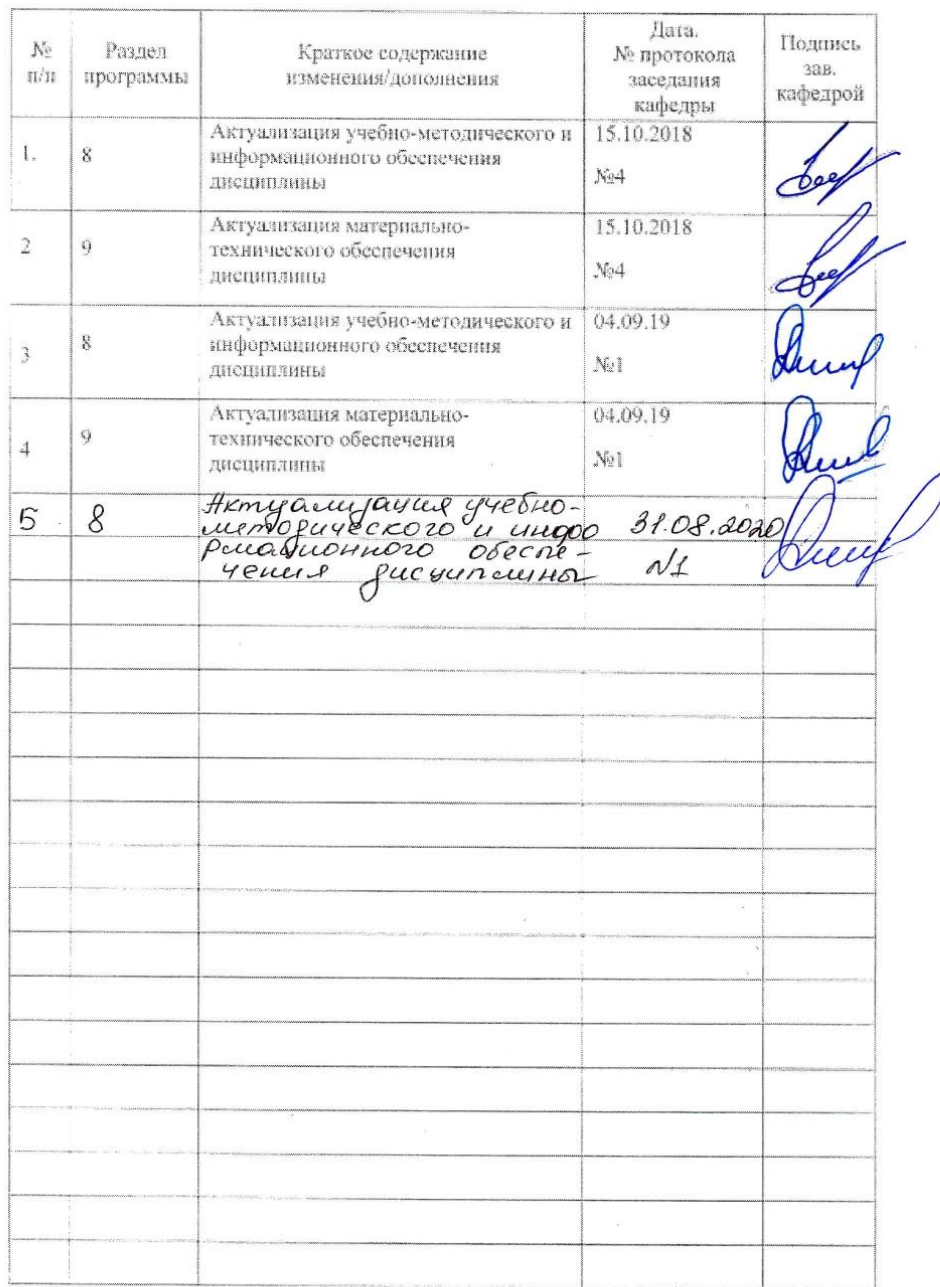 №
п/п
Раздел
программы
Краткое содержание
изменения/дополнения
Дата.
№ протокола
заседания
кафедры
Подпись
зав.
кафедрой
1.
8
Актуализация учебно-методического и
информационного обеспечения
дисциплины
15.10.2018
№4
2
9
Актуализация материально-
технического обеспечения
дисциплины
15.10.2018
№4
3
8
Актуализация учебно-методического и
информационного обеспечения
дисциплины
04.09.19
№1
4
9
Актуализация материально-
технического обеспечения
дисциплины
04.09.19
№1
5
8
Актуализация учебно-
методического и инфо
рмационного обеспе-
чения дисциплины
31.08.2020
№1